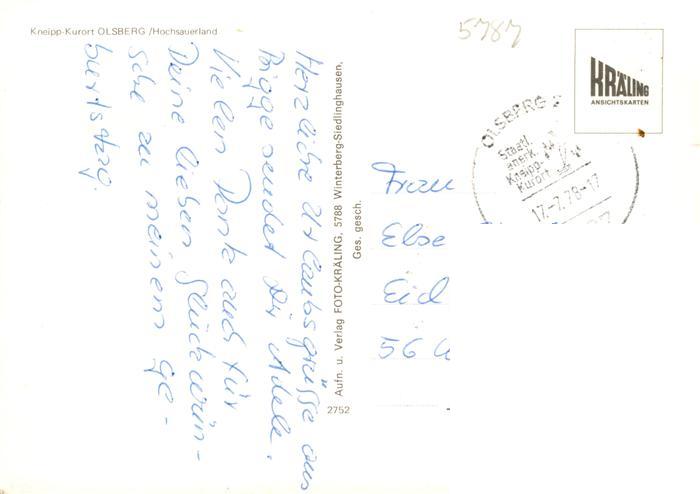 Kneipp-Kurort OLSBERG/Hochsauerland
5787
KRÄLING
ANSICHTSKARTEN
OLSBERG
Staatl.
anerk.
Kneipp-
Kurort
17.-7.78-17
Herzliche Urlaubsgrüsse aus
Bigge sendet Dir Adele.
Vielen Dank auch für
Deine lieben Glückwün-
sche zu meinem Ge-
burtstag.
Aufn. u. Verlag FOTO-KRÄLING, 5788 Winterberg-Siedlinghausen,
Ges. gesch.
2752
Frau
Else
Eid
56